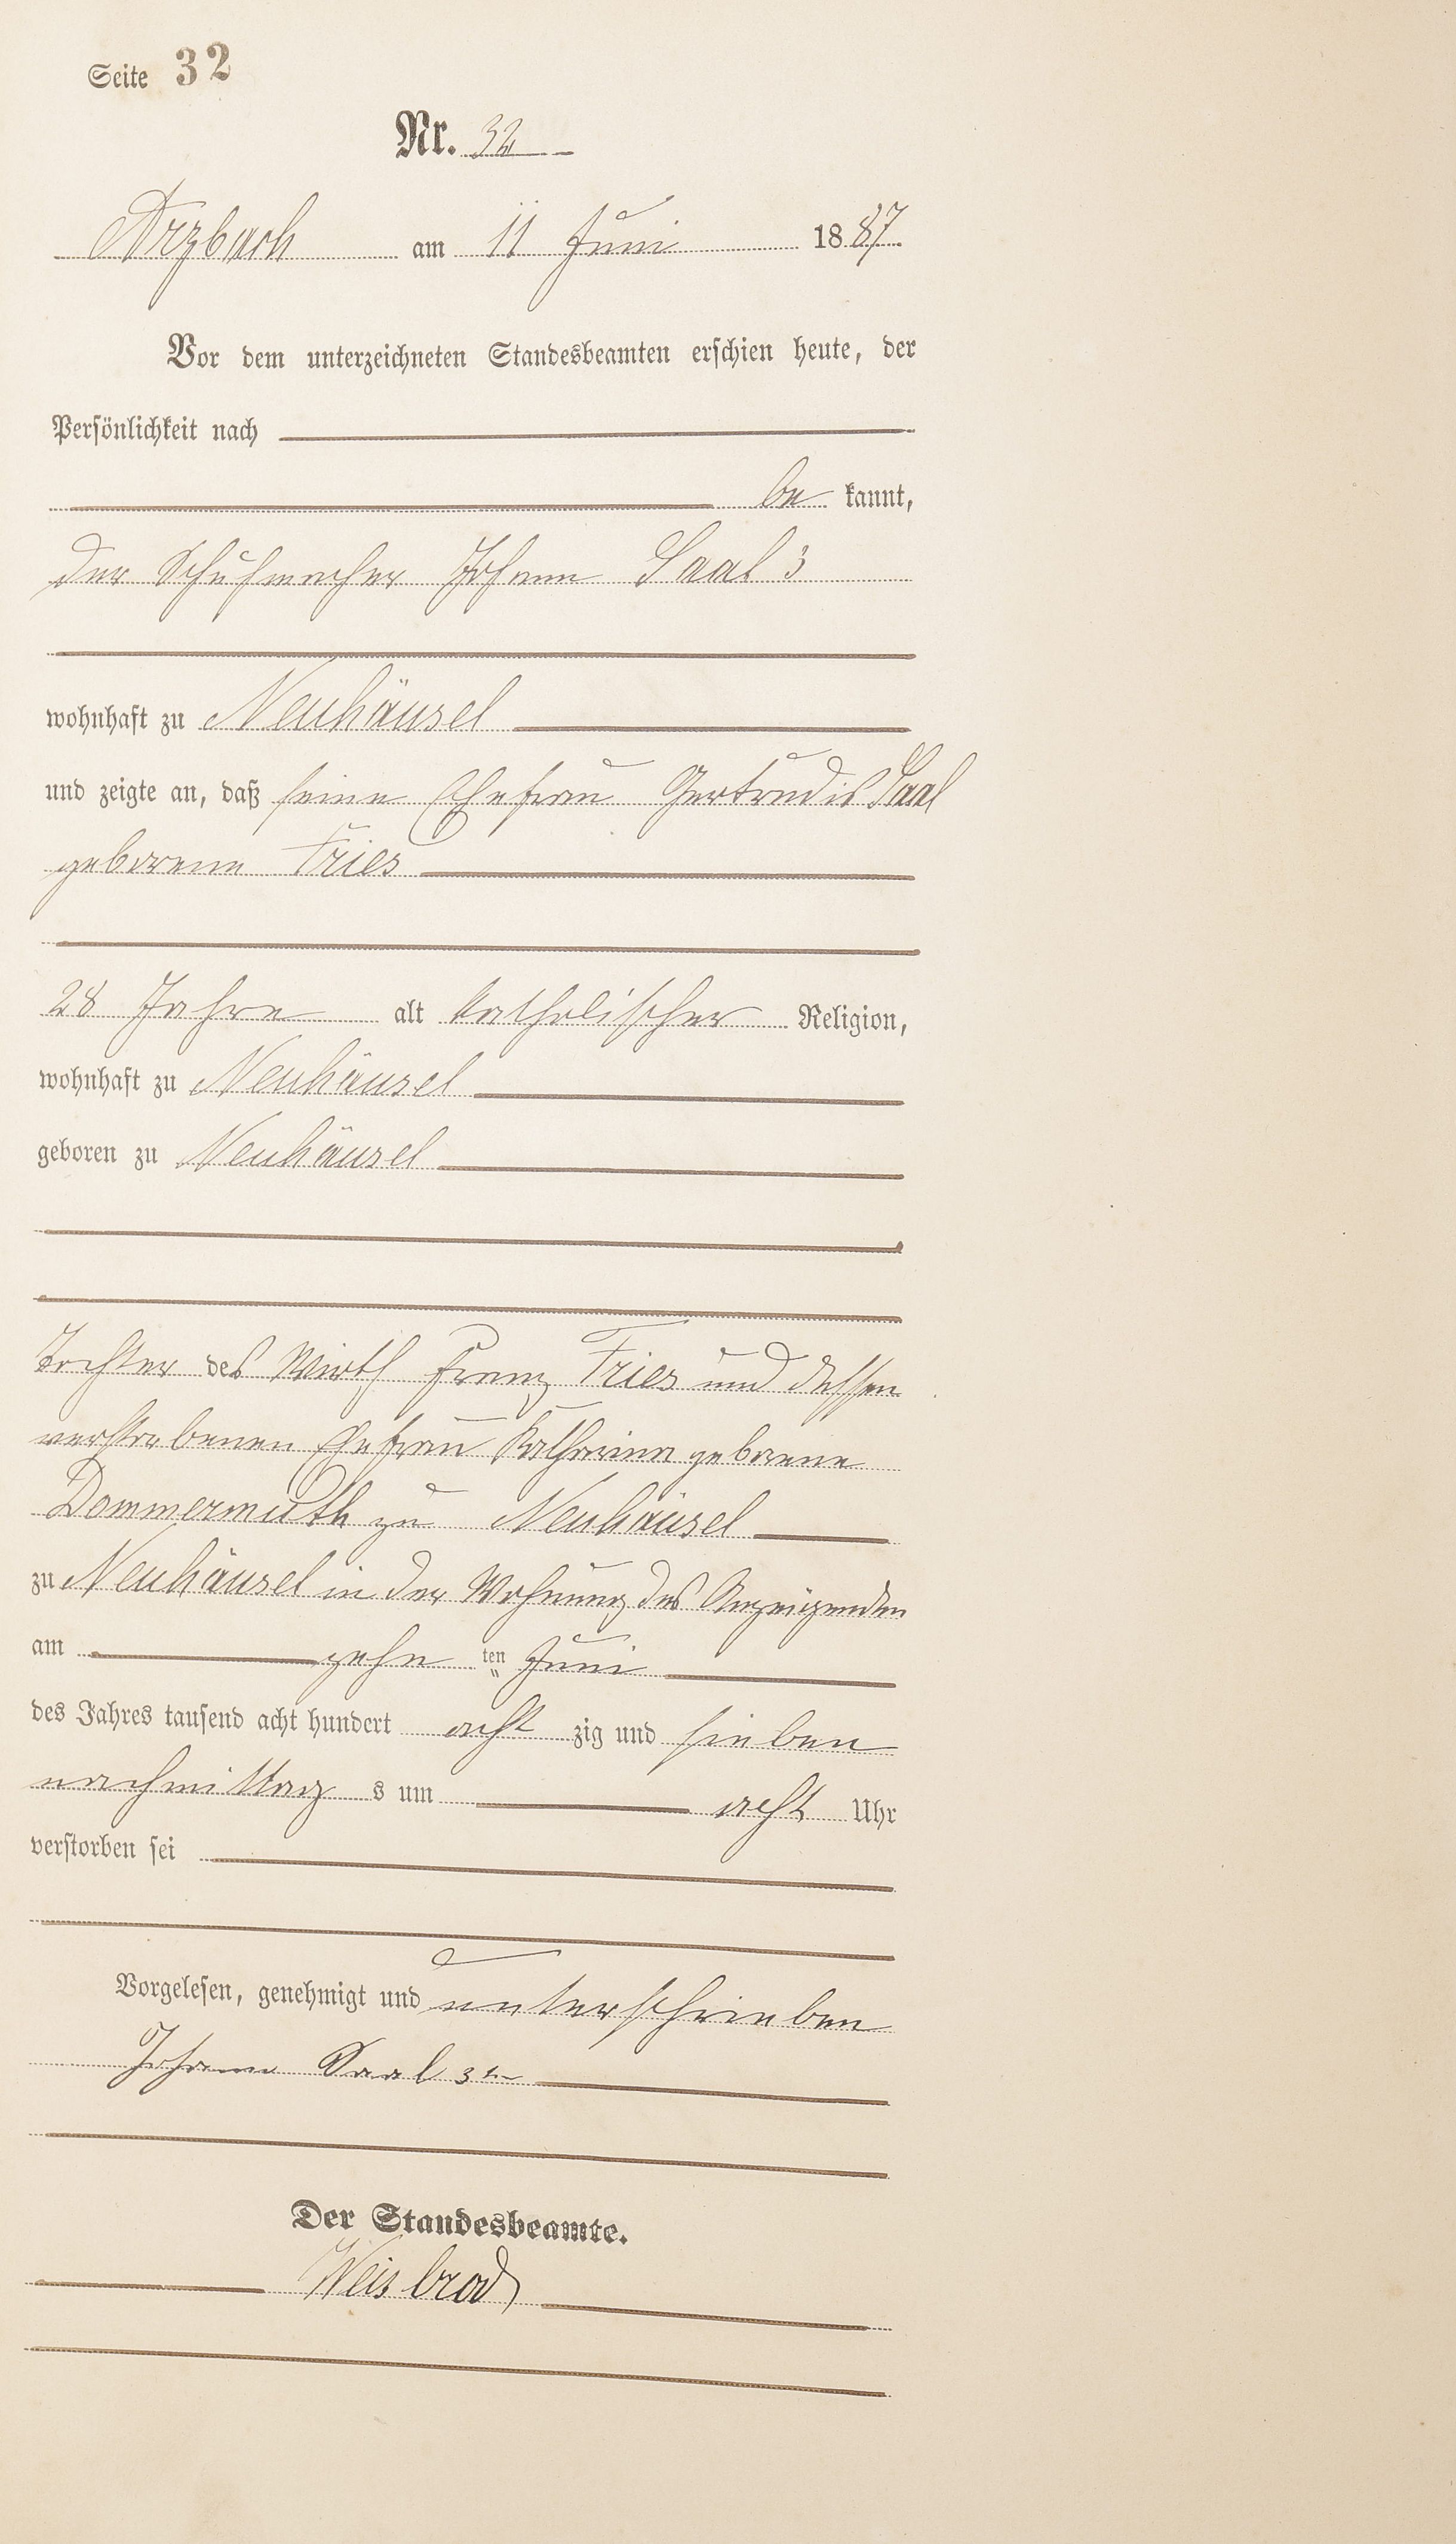 Seite 32
Nr. 32
Arzbach am 11 Juni 1887.
Vor dem unterzeichneten Standesbeamten erschien heute, der
Persönlichkeit nach
be kannt,
der Schuhmacher Johann Saal 3
wohnhaft zu Neuhäusel
und zeigte an, daß seine Ehefrau Gertrudis Saal
geborene Fries
28 Jahre alt katholischer Religion,
wohnhaft zu Neuhäusel
geboren zu Neuhäusel
Tochter des Wirth Franz Fries und dessen
verstorbenen Ehefrau Katharina geborene
Dommermuth zu Neuhäusel
zu Neuhäusel in der Wohnung des Anzeigenden
am zehn ten Juni
des Jahres tausend acht hundert acht zig und sieben
nachmittag s um acht Uhr
verstorben sei
Vorgelesen, genehmigt und unterschrieben
Johann Saal 3tr
Der Standesbeamte.
Weisbrod